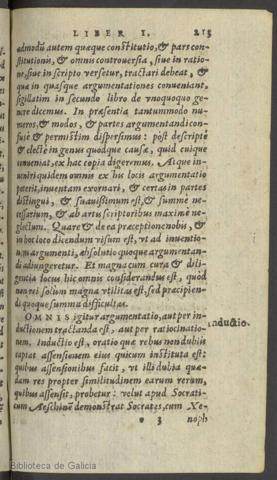 LIBER I. 215
admodū autem quæque constitutio, & pars con-
stitutionis, & omnis controuersia, siue in ratio-
ne, siue in scripto versetur, tractari debeat, &
quæ in quasque argumentationes conueniant,
sigillatim in secundo libro de vnoquoque ge-
nere dicemus. In præsentia tantummodo nu-
meros, & modos, & partes argumentandi con-
fusè & permistim dispersimus: post descriptè
& electè in genus quodque causæ, quid cuique
conueniat, ex hac copia digeremus. Atque in-
ueniri quidem omnis ex his locis argumentatio
poterit, inuentam exornari, & certas in partes
distingui, & suauissimum est, & summè ne-
cessarium, & ab artis scriptoribus maximè ne-
glectum. Quare & de ea præceptione nobis, &
in hoc loco dicendum visum est, vt ad inuentio-
nem argumenti, absolutio quoque argumentan-
di adiungeretur. Et magna cum cura & dili-
gentia locus hic omnis considerandus est, quòd
non rei solùm magna vtilitas est, sed præcipien-
di quoque summa difficultas.
OMNIS igitur argumentatio, aut per in-
ductionem tractanda est, aut per ratiocinatio-
nem. Inductio est, oratio quæ rebus non dubiis
captat assensionem eius quicum instituta est:
quibus assensionibus facit, vt illi dubia quæ-
dam res propter similitudinem earum rerum,
quibus assensit, probetur: velut apud Socrati-
cum Aeschinē demonstrat Socrates, cum Xe-
* 3 noph
Inductio.
Biblioteca de Galicia